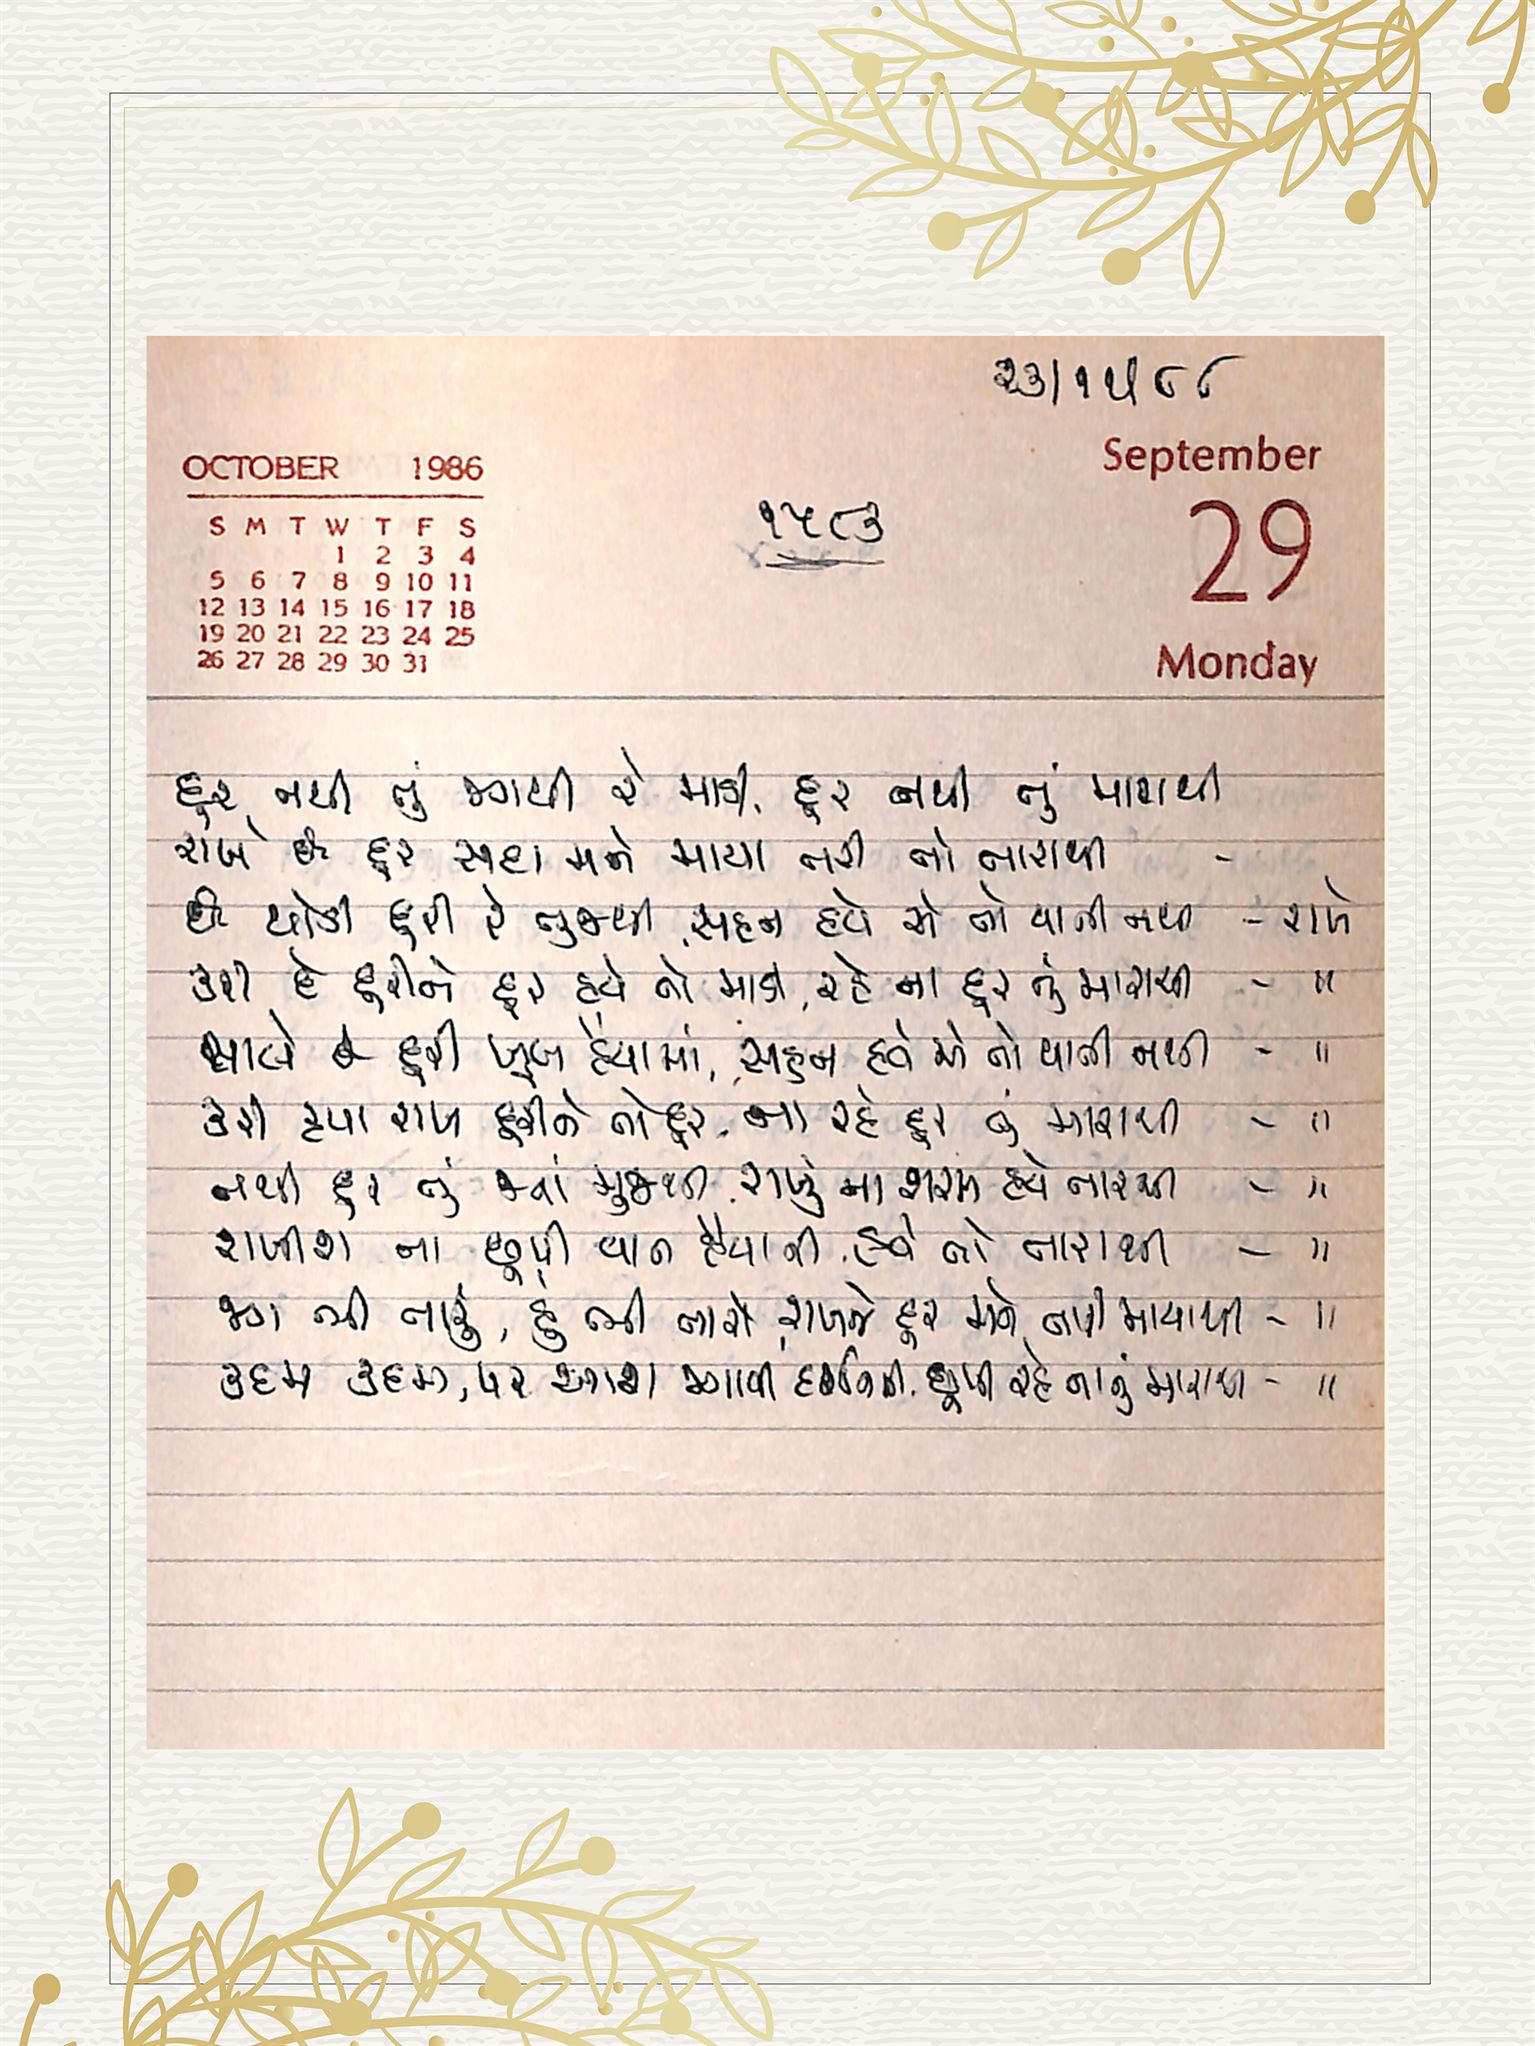 ૨૩/૧૧/૮૮
OCTOBER 1986
S M T W T F S
1 2 3 4
5 6 7 8 9 10 11
12 13 14 15 16 17 18
19 20 21 22 23 24 25
26 27 28 29 30 31
૧૫૮૩
September
29
Monday
દૂર નથી તું જગથી રે માડી, દૂર નથી તું મારાથી
રાખે છે દૂર સદા મને માયા તારી તો તારાથી -
છે થોડી દૂરી રે તુજથી, સહન હવે એ તો થાતી નથી - રાખે
કરી દે દૂરીને દૂર હવે તો માડી, રહે ના દૂર તું મારાથી - "
સાલે છે દૂરી ખૂબ હૈયામાં, સહન હવે એ તો થાતી નથી - "
કરી કૃપા રાખ દૂરીને તો દૂર, ના રહે દૂર તું મારાથી - "
નથી દૂર તું જ્યાં મુજથી, રાખું ના શરમ હવે તારથી - "
રાખીશ ના છૂપી વાત હૈયાની, હવે તો તારાથી - "
જગ ભી તારું, હું ભી તારો, રાખજે દૂર મને તારી માયાથી - "
કદમ કદમ, પર આશા જગાવી દર્શનની, છૂપી રહે ના તું મારાથી - "